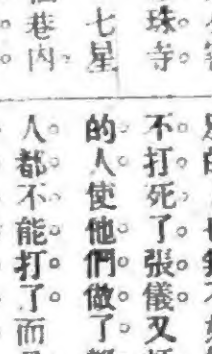 珠寺。
七星
巷内
不打死了。張儀。又
的人使他們做了。
人都不能打了。而